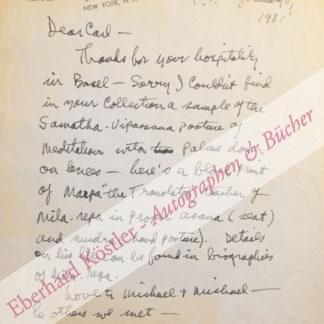 NEW YORK, N.Y.
1981
Dear Carl —
Thanks for your hospitality
in Basel — Sorry I couldn't find
in your Collection a sample of the
Samatha-Vipassana posture of
Meditation with palms down
on knees — here's a blockprint
of Marpa "the Translator" teacher of
Mila-repa in proper asana (seat)
and mudra (hand posture). Details
on his life can be found in biographies
of Mila-repa.
Love to Michael + Michael —
& others we met —
Eberhard Köstler - Autographen & Bücher